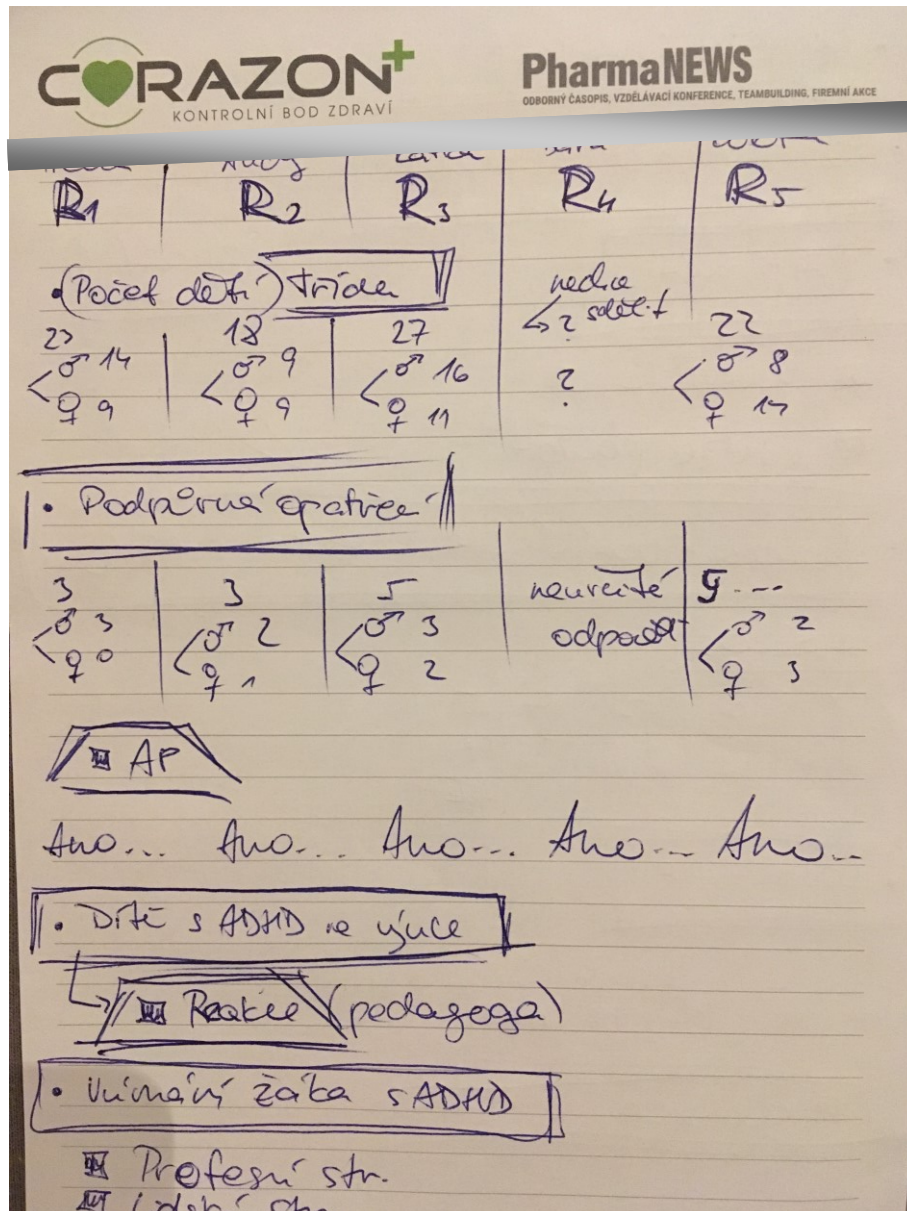 CORAZON+
KONTROLNÍ BOD ZDRAVÍ
PharmaNEWS
ODBORNÝ ČASOPIS, VZDĚLÁVACÍ KONFERENCE, TEAMBUILDING, FIREMNÍ AKCE
R1 R2 R3 R4 R5
• (Počet dětí) třída
nechce
sdělit
23 18 27 ? 22
♂ 14 ♂ 9 ♂ 16 ? ♂ 8
♀ 9 ♀ 9 ♀ 11 ♀
• Podpůrná opatření
3 3 5 neurčité 5 ---
♂ 3 ♂ 2 ♂ 3 odpověď ♂ 2
♀ 0 ♀ 1 ♀ 2 ♀ 3
AP
Ano... Ano... Ano... Ano... Ano...
• Dítě s ADHD ve výuce
Reakce (pedagoga)
• Vnímání žáka s ADHD
Profesní str.